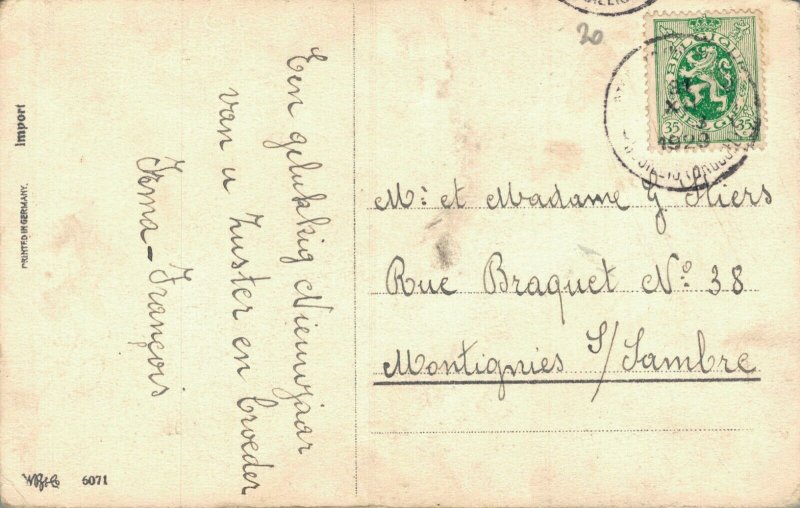 Een gelukkig Nieuwjaar
van u zuster en broeder
Irma - François
Mr et Madame G Stiers
Rue Braquet No 38
Montignies S/Sambre
20
BELGIQUE
BELGIË
35
35
Import
PRINTED IN GERMANY.
6071